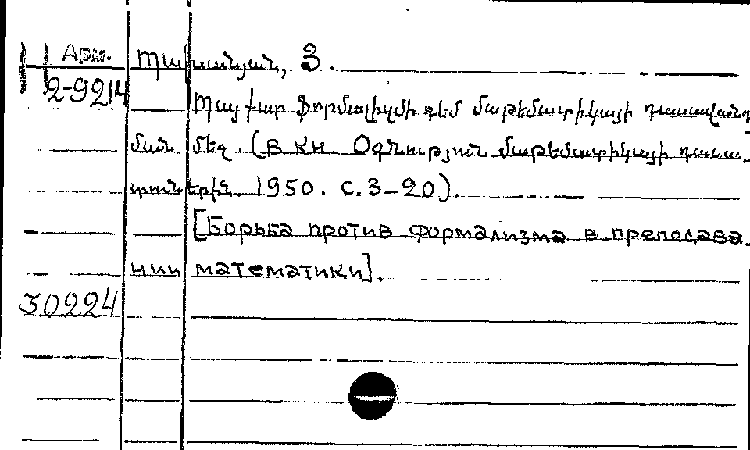 Арм.
2-9214
Յ.
Պայքար ֆորմալիզմի դեմ մաթեմատիկայի դասավանդ
ման մեջ. (в кн Օգնություն մաթեմատիկայի դասա
տուներին. 1950. с. 3-20).
[Борьба против формализма в преподава
нии математики].
30224